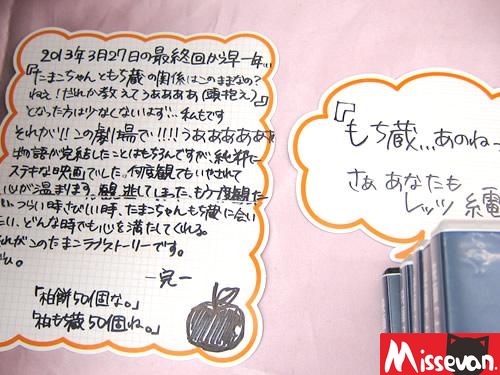 2013年3月27日の最終回から早一年...
『たまこちゃんともち蔵の関係はこのままなの?
ねぇ!だれか教えてうああああ(頭抱え)』
となった方は少なくないはず...私もです
それが!!この劇場で!!!!うああああああ
物語が完結したことはもちろんですが、純粋に
ステキな映画でした。何度観てもいやされて
心が温まります。
つらい時さびしい時、たまこちゃんもち蔵に会い
たい、どんな時でも心を満たしてくれる。
それがこのたまこラブストーリーです。
い。
-完-
「柏餅50個な。」
「柏もち蔵50個ね。」
『もち蔵...あのねっ
さぁ あなたも
レッツ
Missevan.